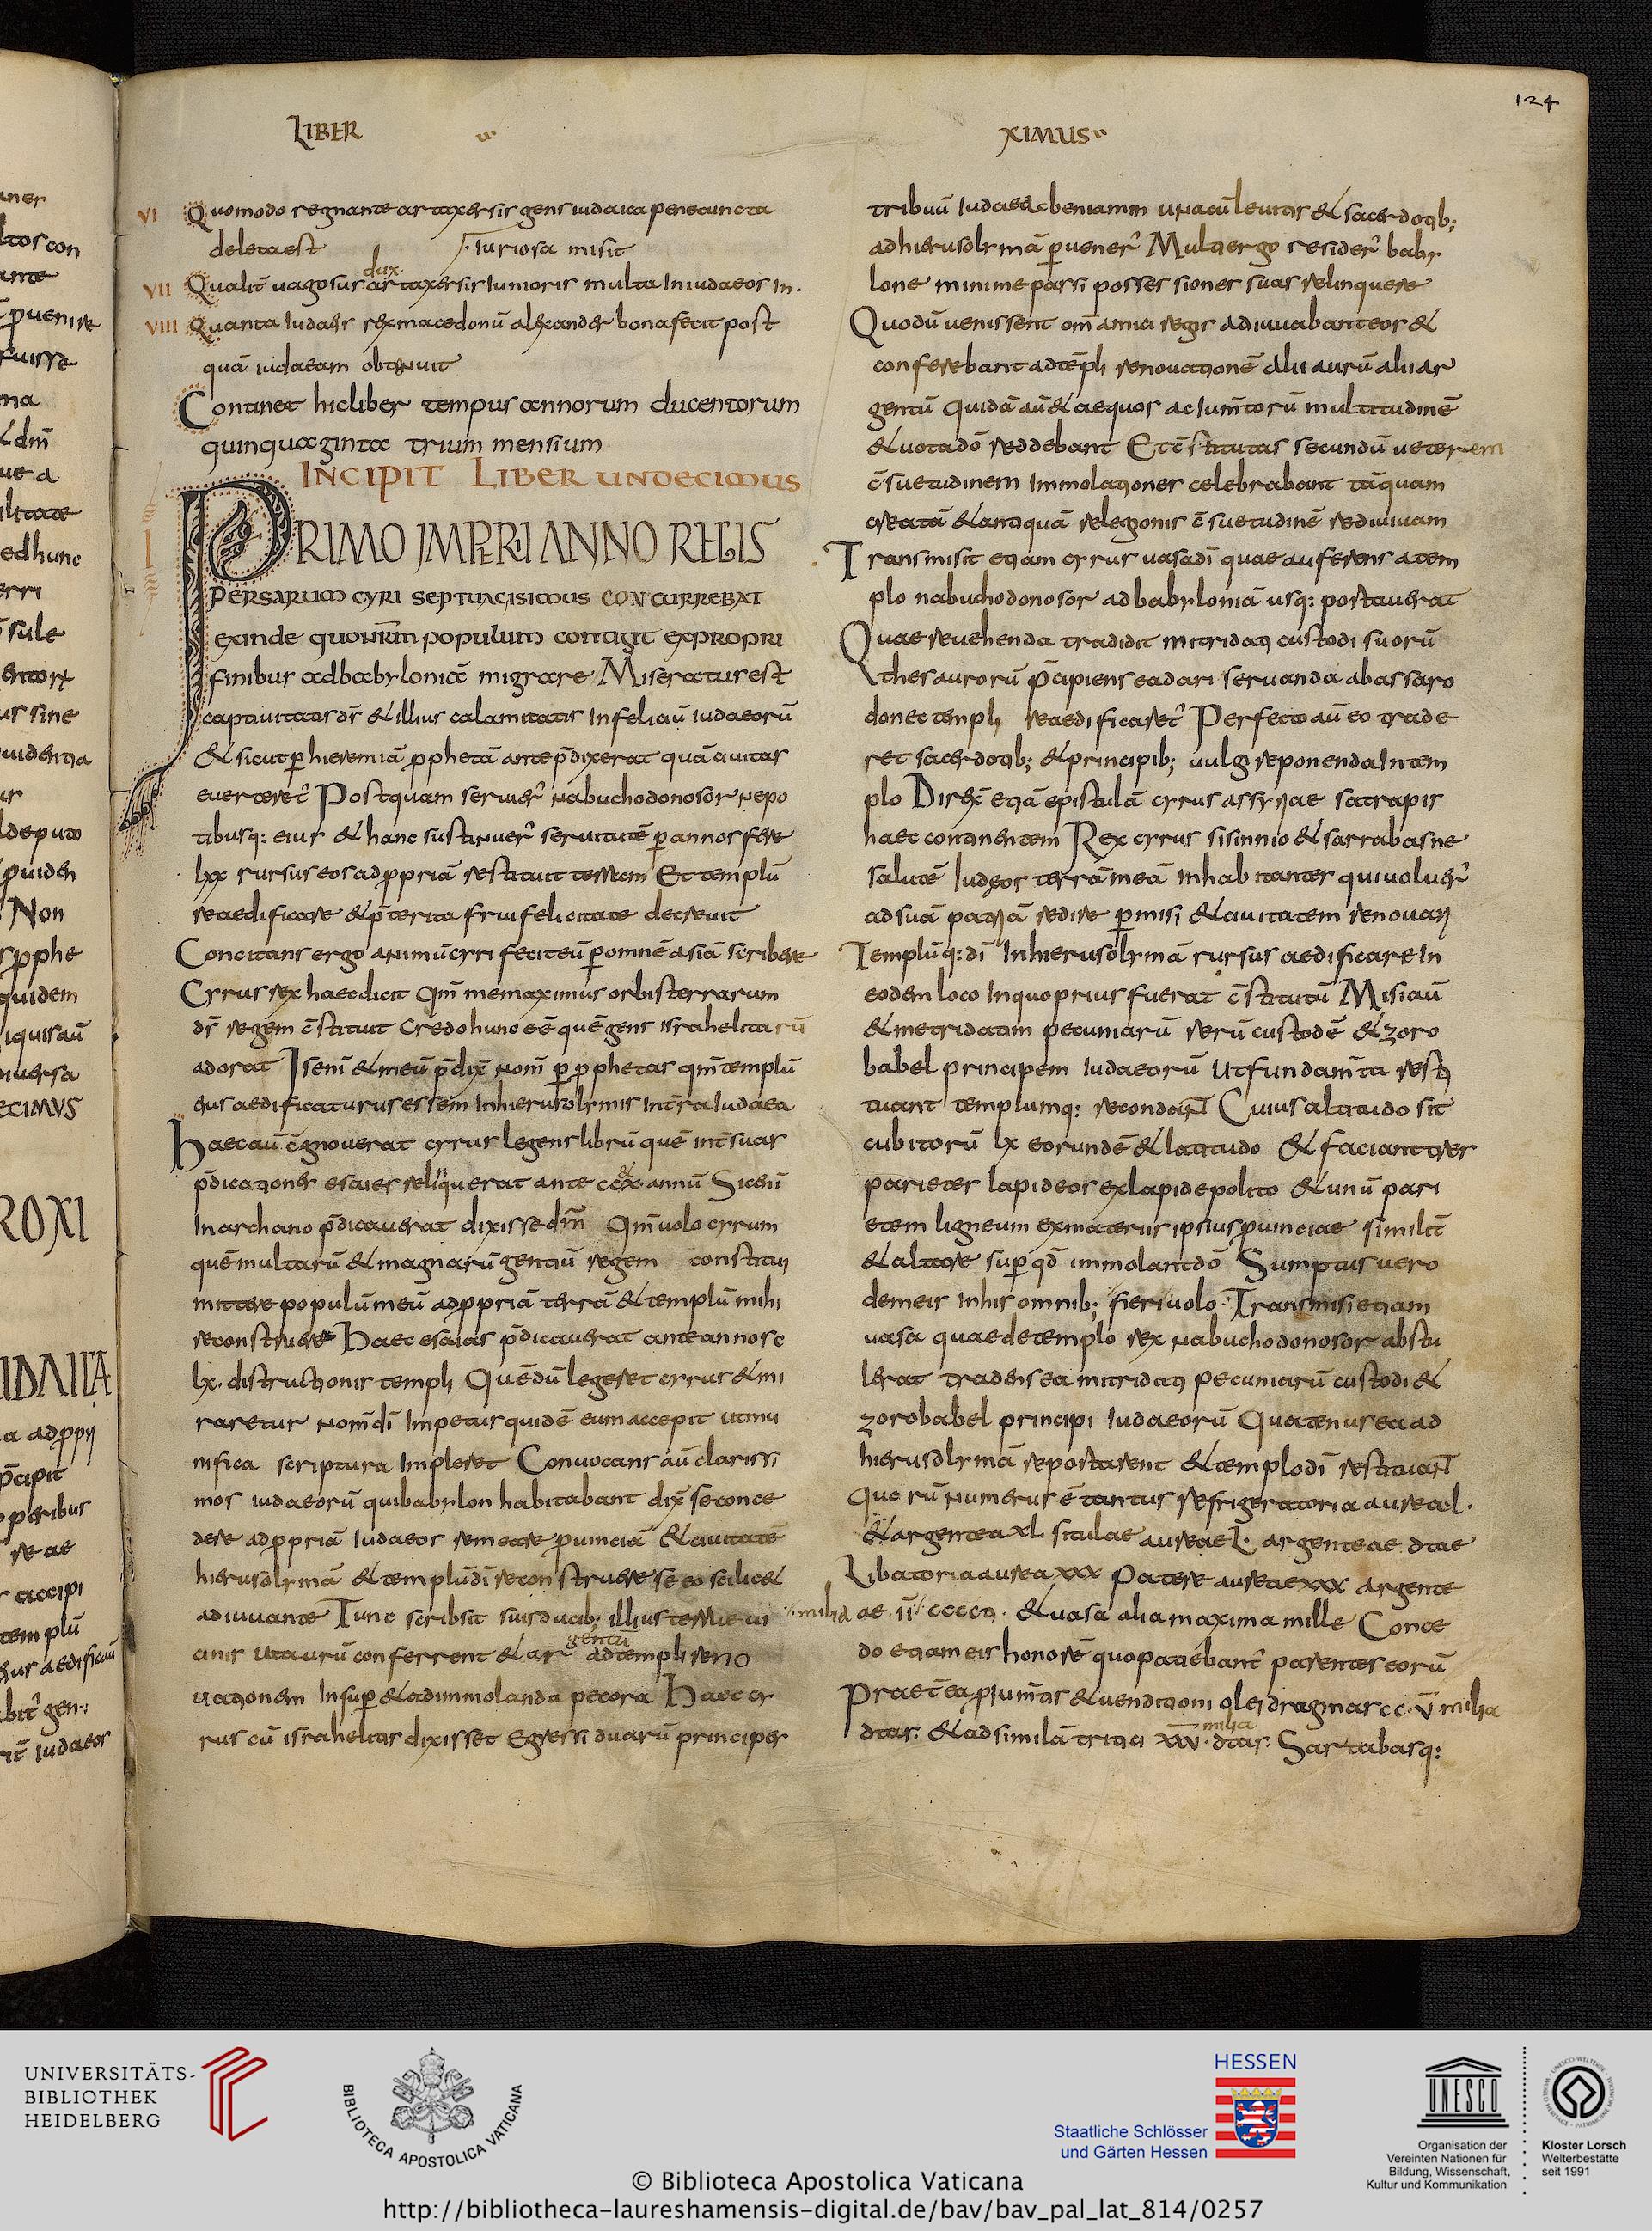 124
LIBER
XIMUS
VI Quomodo regnante artaxersis gens iudaica pene cuncta
deleta est furiosa misit
VII Qualit̄ uagosus dux artaxersis Iunioris multa In iudaeos In.
VIII Quanta Iudaeis rex macedonū alexander bona fecit post
quā iudaeam obtinuit
Continet hic liber tempus annorum ducentorum
quinquaginta trium mensium
INCIPIT LIBER UNDECIMUS
I PRIMO IMPERI ANNO REGIS
PERSARUM CYRI SEPTUACISIMUS CONCURREBAT
exinde quo nr̄m populum contigit ex propri
finibus ad babyloniā migrare Miseratus est
captiuitatis ds̄ & illius calamitatis Infeliciū iudaeorū
& sicut p̄ hieremiā pphetā ante p̄dixerat quā ciuitas
euerteret̄ Postquam seruier̄ nabuchodonosor nepo
tibusq: eius & hanc sustinuer̄ seruitutē p̄ annos fere
lxx rursus eos ad ppriā restituit terrem Et templū
reaedificare & p̄terita frui felicitate decreuit
Concitans ergo animū cyri fecit eū p̄ omnē asiā scribere
Cyrus rex haec dicit Qm̄ me maximus orbis terrarum
ds̄ regem c̄stituit Credo hunc eē quē gens israhelitarū
adorat Iseni & meū p̄dix̄ nom̄ p̄ pphetas qm̄ templū
eius aedificaturus essem In hierusolymis Int̄ra Iudaea
Haec aū c̄gnouerat cyrus legens librū quē int̄ suas
p̄dicationes esaias reliquerat ante ccx annū Sic eni
In archano p̄dicauerat dixisse dm̄ Qm̄ uolo cyrum
quē multarū & magnarū gentiū regem constitui
mittere populū meū ad ppriā terrā & templū mihi
reconstruere Haec esaias p̄dicauerat ante annos c
lx. distructionis templi Quē dū legeret cyrus & mi
raretur nom̄ di Impetus quidē eum accepit ut mu
nifica scriptura Impleret Conuocans aū clarissi
mos iudaeorū qui babylon habitabant dix̄ se conce
dere ad ppriā Iudaeos remeare puinciā & ciuitatē
hierusolymā & templū di reconstruere se eo scilic&
adiuuante Tunc scribsit suis ducib; illius terrae ui
cinis ut aurū conferrent & argentū ad templi reno
uationem Insup̄ & ad immolanda pecora Haec cy
rus cū israhelitis dixisset Egressi duarū principes
tribuū Iudae ac beniamin una cū leuitis & sacerdotib;
ad hierusolymā p̄uener̄ Multi ergo resider̄ baby
lone minime passi possessiones suas relinquere
Quo dū uenissent om̄ amici regis adiuuabant eos &
conferebant ad tēpli renouationē Alii aurū alii ar
gentū Quidā aū & aequos ac Ium̄torū multitudinē
& uota dō reddebant Et c̄stitutas secundū ueterem
c̄suetudinem Immolationes celebrabant tāquam
creatā & antiquā relegionis c̄suetudinē rediuiuam
Transmisit etiam cyrus uasa di quae auferens a tem
plo nabuchodonosor ad babyloniā usq: portauerat
Quae reuehenda tradidit mitridati custodi suorū
thesaurorū p̄cipiens ea dari seruanda abassaro
donec templi reaedificaret̄ Perfecto aū eo trade
ret sacerdotib; & principib; uulgi reponenda In tem
plo Direx̄ etiā epistulā cyrus assyriae satrapis
haec continentem Rex cyrus sisinnio & sarrabasne
salutē Iudeos terrā meā Inhabitantes qui uoluer̄
ad suā patriā redire p̄misi & ciuitatem renouari
Templūq: di In hierusolymā rursus aedificare In
eodem loco In quo prius fuerat c̄stitutū Misi aū
& metridatam pecuniarū rerū custodē & zoro
babel principem Iudaeorū Ut fundam̄ta resti
tuant templumq: recondant Cuius altitudo sit
cubitorū lx eorundē & latitudo & faciant tres
parietes lapideos ex lapide polito & unū pari
etem ligneum ex materiis ipsius puinciae similit̄
& altare sup̄ qd̄ immolant dō Sumptus uero
de meis In his omnib; fieri uolo. Transmisi etiam
uasa quae de templo rex nabuchodonosor abstu
lerat tradens ea mitridati pecuniarū custodi &
zorobabel principi Iudaeorū Quatenus ea ad
hierusolymā reportarent & templo di restituant
Quorū numerus ē tantus refrigeratoria aurea l.
& argentea xl. situlae aureae L. argenteae dtae
Libatoria aurea xxx Patere aureae xxx Argente
milia ae ii ccccti. & uasa alia maxima mille Conce
do etiam eis honorē quo potiebant̄ parentes eorū
Praet̄ ea p ium̄tis & uenditioni olei dragmas cc. v̄ milia
dtas. & ad similā tritici xxv milia dtas. Sartabasq:
UNIVERSITÄTS-
BIBLIOTHEK
HEIDELBERG
BIBLIOTECA APOSTOLICA VATICANA
HESSEN
Staatliche Schlösser
und Gärten Hessen
UNESCO
Organisation der
Vereinten Nationen für
Bildung, Wissenschaft,
Kultur und Kommunikation
Kloster Lorsch
Welterbestätte
seit 1991
© Biblioteca Apostolica Vaticana
http://bibliotheca-laureshamensis-digital.de/bav/bav_pal_lat_814/0257